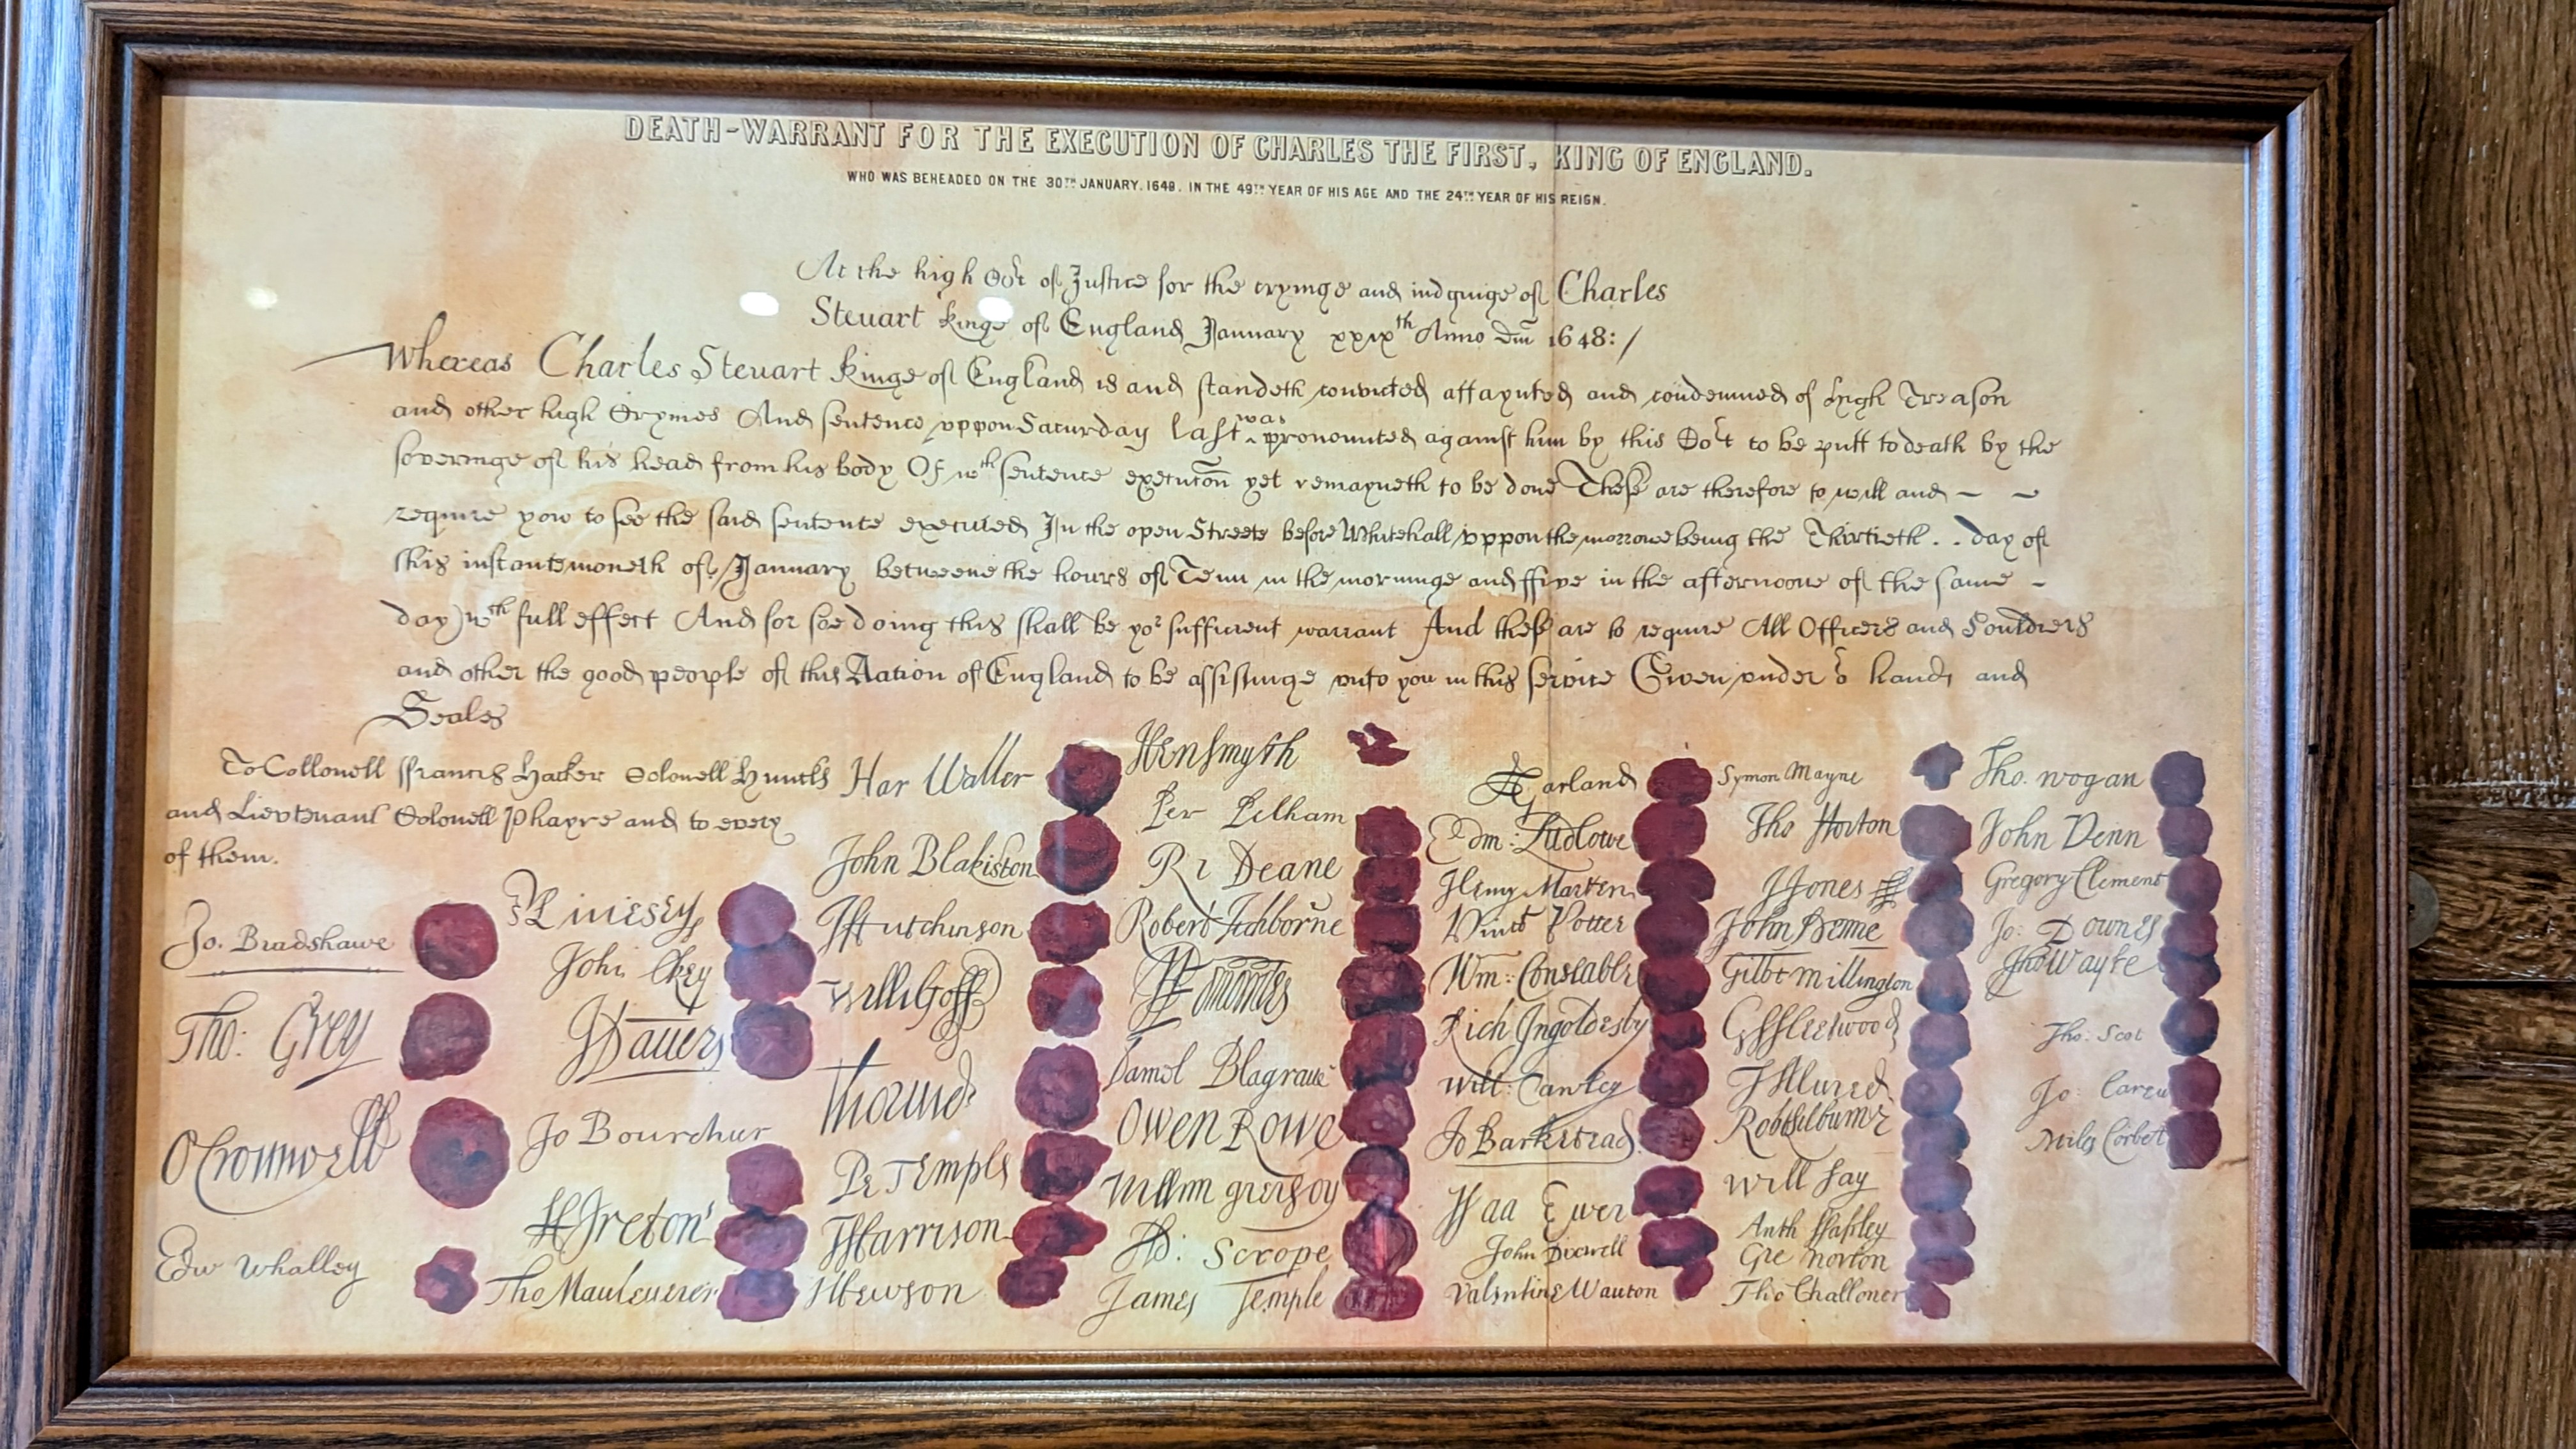 DEATH-WARRANT FOR THE EXECUTION OF CHARLES THE FIRST, KING OF ENGLAND.
WHO WAS BEHEADED ON THE 30TH JANUARY. 1648. IN THE 49TH YEAR OF HIS AGE AND THE 24TH YEAR OF HIS REIGN.
At the high Cort of Justice for the tryinge and iudginge of Charles
Steuart kinge of England January xxixth Anno Dm 1648:/
Whereas Charles Steuart kinge of England is and standeth convicted attaynted and condemned of high Treason
and other high Crymes And sentence vppon Saturday last was pronounced against him by this Cort to be putt to death by the
severinge of his head from his body Of wch sentence execucon yet remayneth to be done These are therefore to will and
require yow to see the said sentence executed In the open Streete before Whitehall vppon the morrowe being the Thirtieth day of
this instante moneth of January betweene the houres of Tenn in the morninge and ffive in the afternoone of the same
day wth full effect And for soe doing this shall be yor sufficient warrant And these are to require All Officers and Souldiers
and other the good people of this Nation of England to be assistinge vnto you in this service Given vnder or hands and
Seales
To Collonell ffrancis Hacker Colonell Huncks
and Lieutenant Colonell Phayre and to every
of them.
Jo. Bradshawe
Tho: Grey
O Cromwell
Edw Whalley
John Okey
J Dauers
Jo Bourchier
H Ireton
Tho Mauleuerer
Har Waller
John Blakiston
J Hutchinson
Willi Goff
Pe Temple
T Harrison
J Hewson
Hen Smyth
Per Pelham
Ri Deane
Robert Tichborne
Daniel Blagraue
Owen Rowe
Ad: Scrope
James Temple
A Garland
Edm: Ludlowe
Henry Marten
Vinct Potter
Wm: Constable
Rich Ingoldesby
Will: Cawley
Jo Barkstead
Isaa Ewer
John Dixwell
Valentine Wauton
Symon Mayne
Tho Horton
J Jones
John Penne
Gilbt Millington
G ffleetwood
J Alured
Robt Lilburne
Will Say
Anth Stapley
Gre Norton
Tho Challoner
Tho. Wogan
John Venn
Gregory Clement
Jo: Downes
Tho Wayte
Tho: Scot
Jo: Carew
Miles Corbet